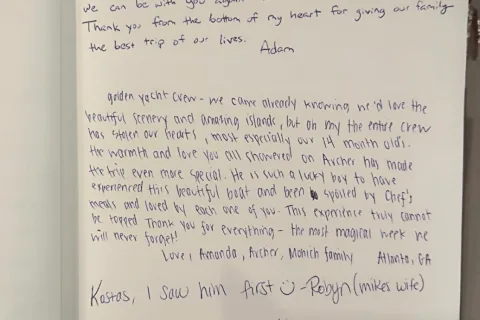 we can be with you again
Thank you from the bottom of my heart for giving our family
the best trip of our lives.
Adam
golden yacht crew - we came already knowing we'd love the
beautiful scenery and amazing islands, but oh my the entire crew
has stolen our hearts, most especially our 14 month old's.
the warmth and love you all showered on Archer has made
the trip even more special. He is such a lucky boy to have
experienced this beautiful boat and been spoiled by Chef's
meals and loved by each one of you. This experience truly cannot
be topped Thank you for everything - the most magical week we
will never forget!
Love, Amanda, Archer, Monich family Atlanta, GA
Kostas, I saw him first -Robyn (mikes wife)